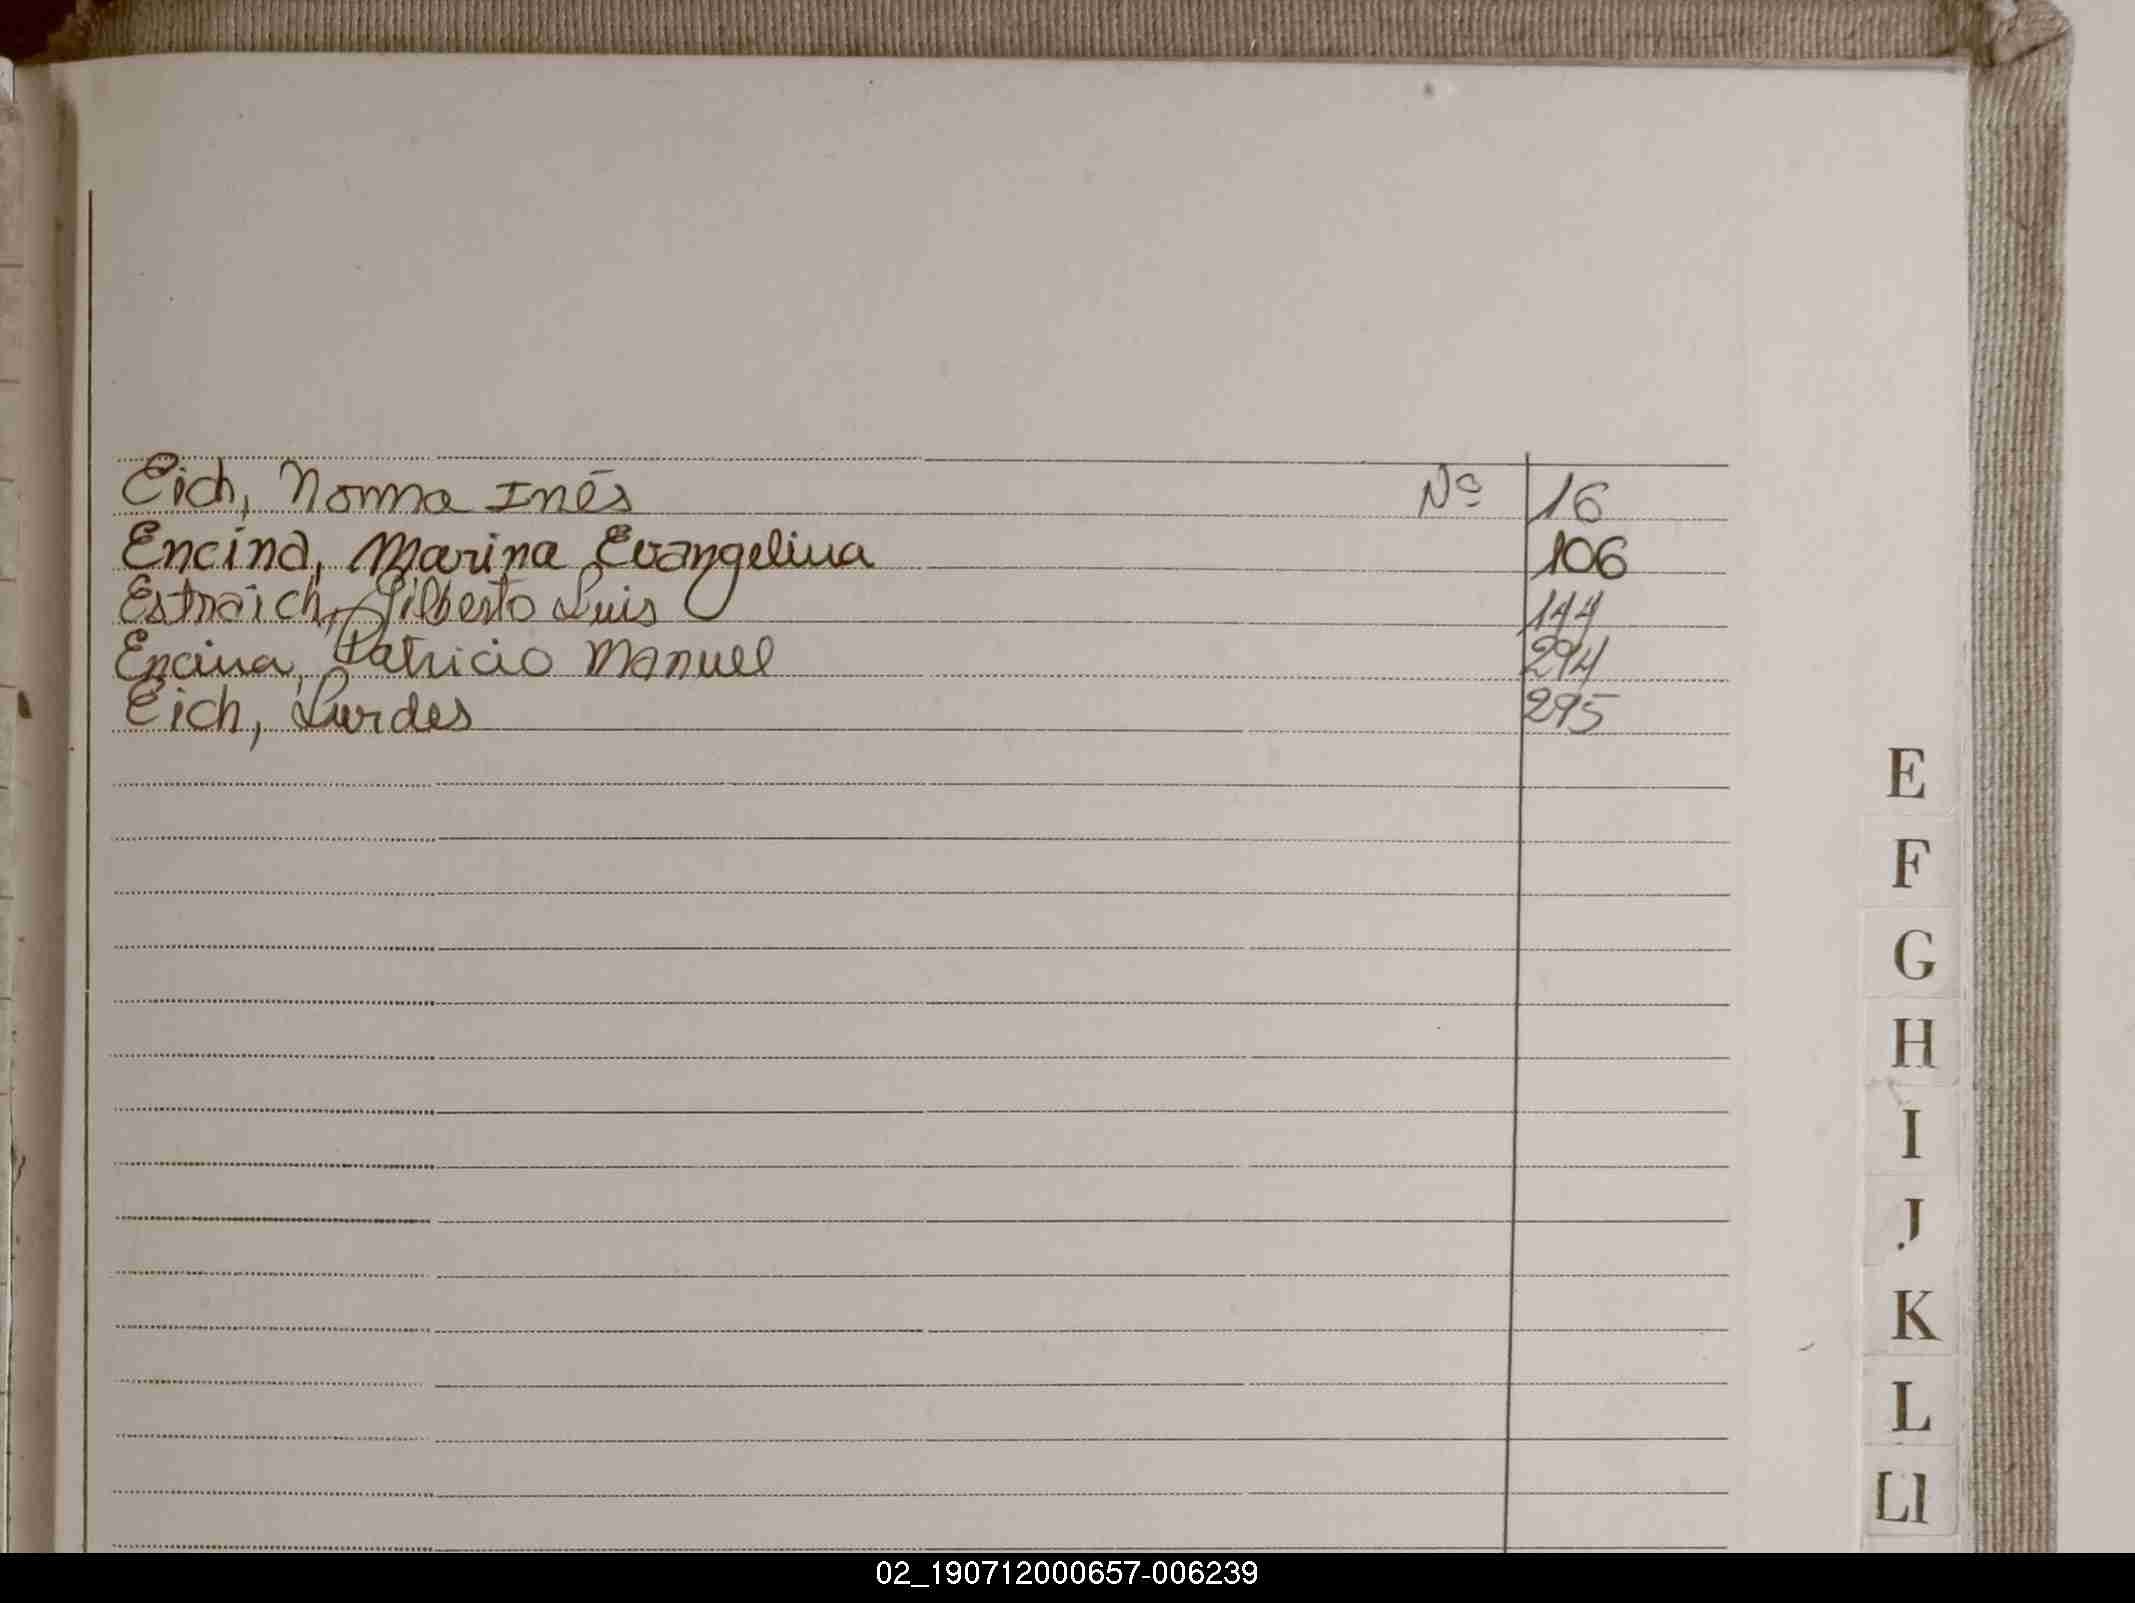 Eich, Norma Inés Nº 16
Encina, Marina Evangelina 106
Estraich, Gilberto Luis 144
Encina, Patricio Manuel 294
Eich, Lurdes 295
E
F
G
H
I
J
K
L
Ll
02_190712000657-006239